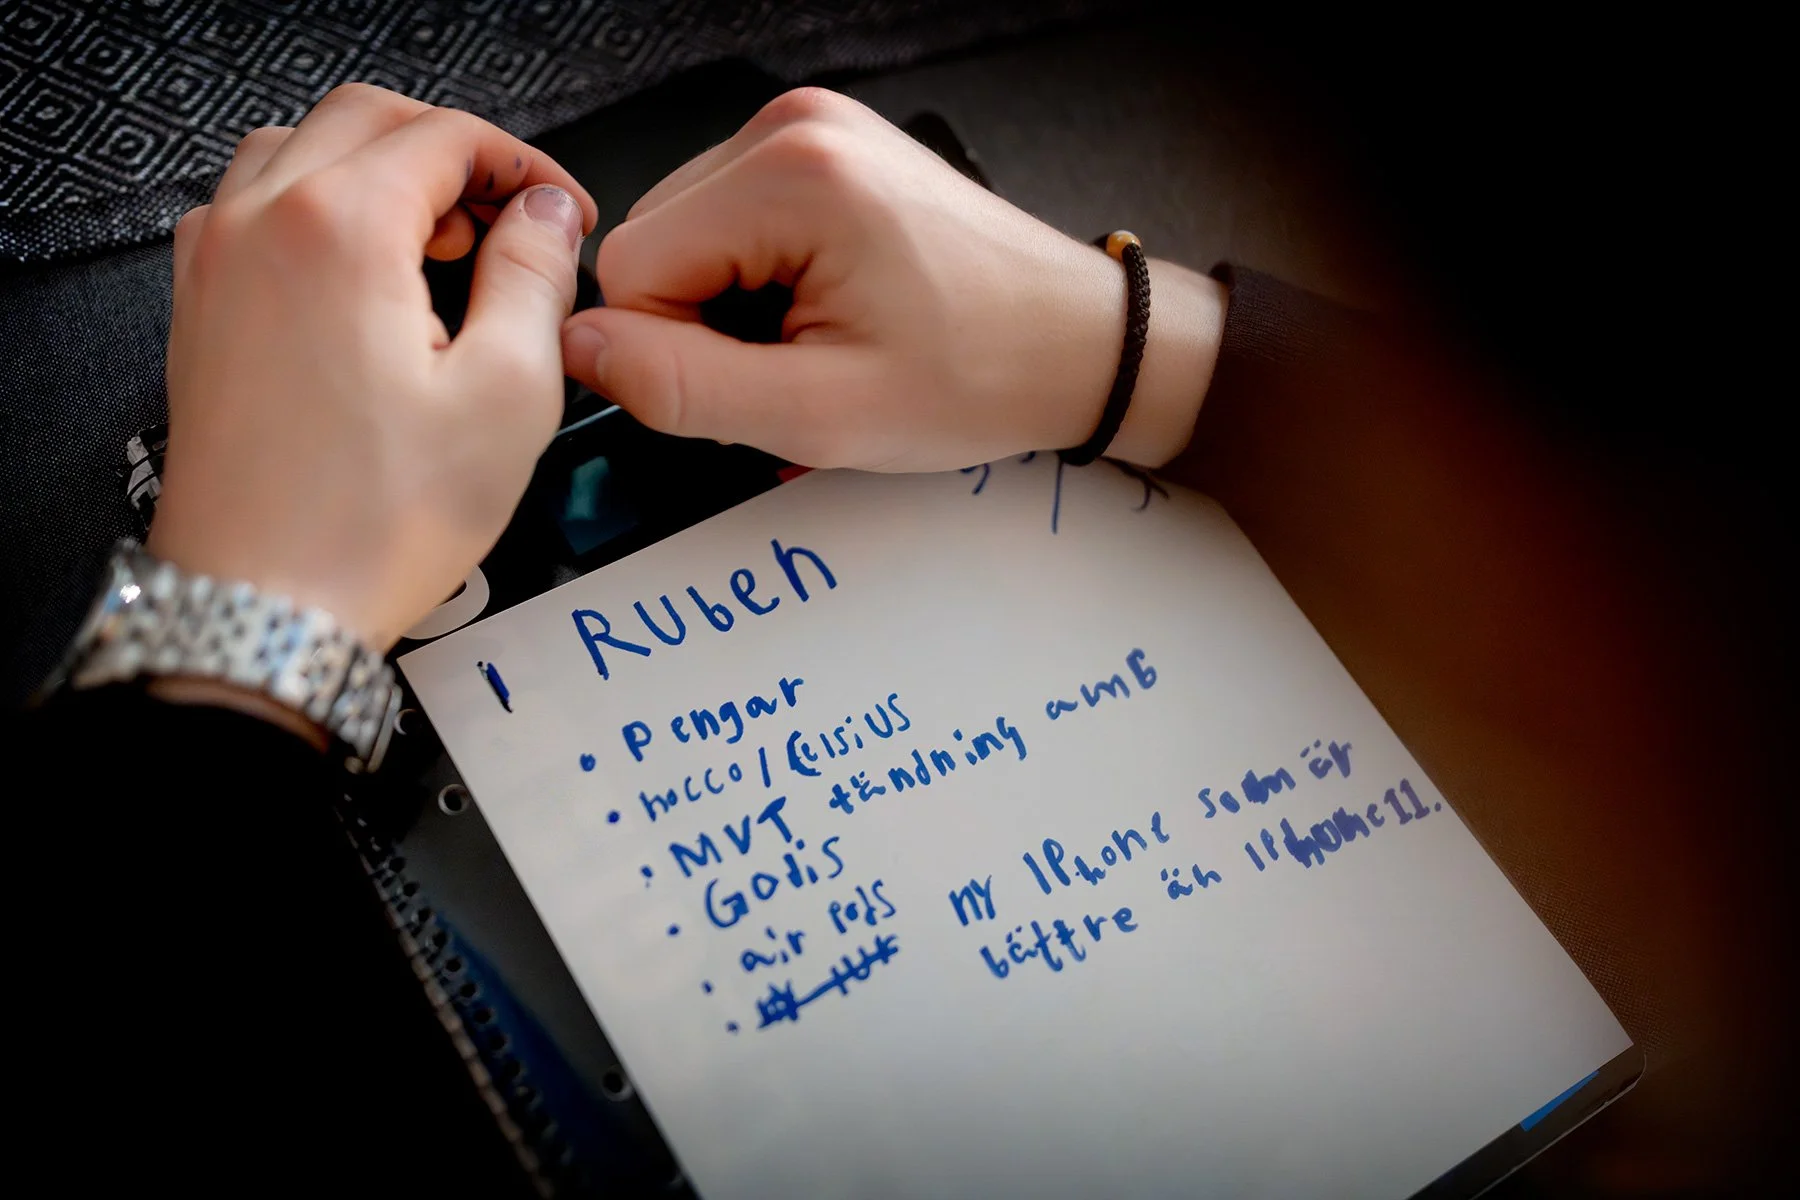 Ruben
• Pengar
• nocco / Celsius
• MVT tändning amG
• Godis
• air pods
ny IPhone som är
bättre än IPhone 11.